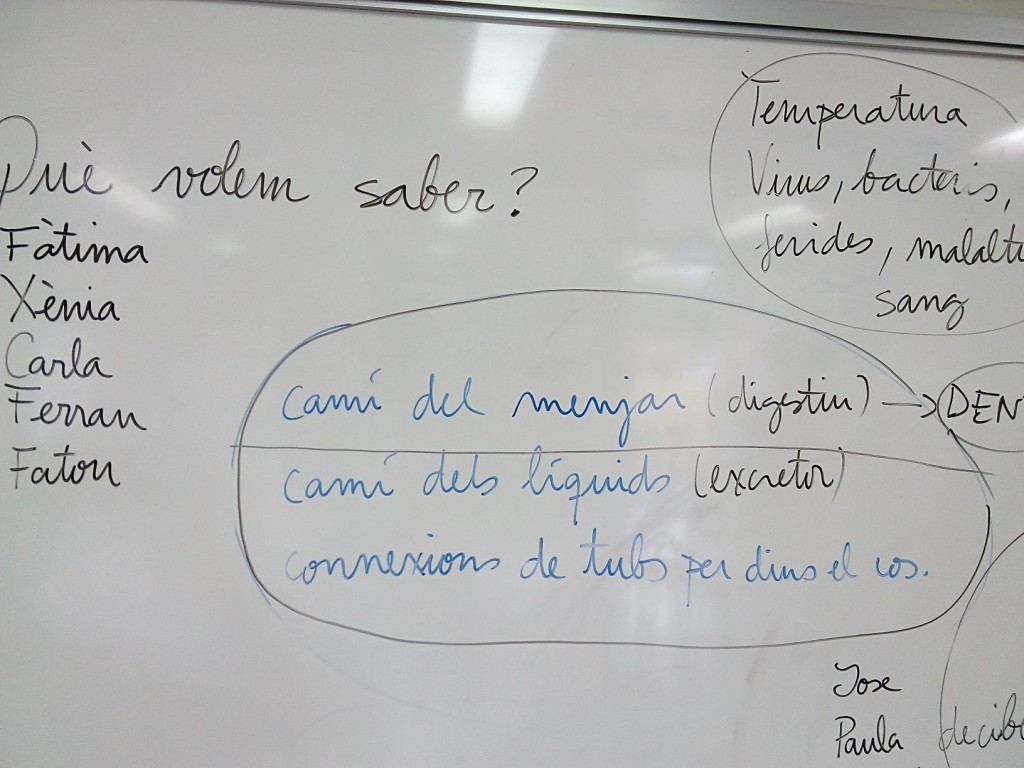 Què volem saber?
Fàtima
Xènia
Carla
Ferran
Fatou
Temperatura
Virus, bacteris,
ferides, malalti
sang
camí del menjar (digestiu) → DENT
camí dels líquids (excretor)
connexions de tubs per dins el cos.
Jose
Paula
decibe